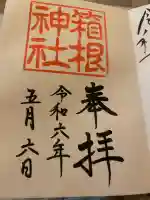 奉拝
箱根
神社
令和六年
五月六日